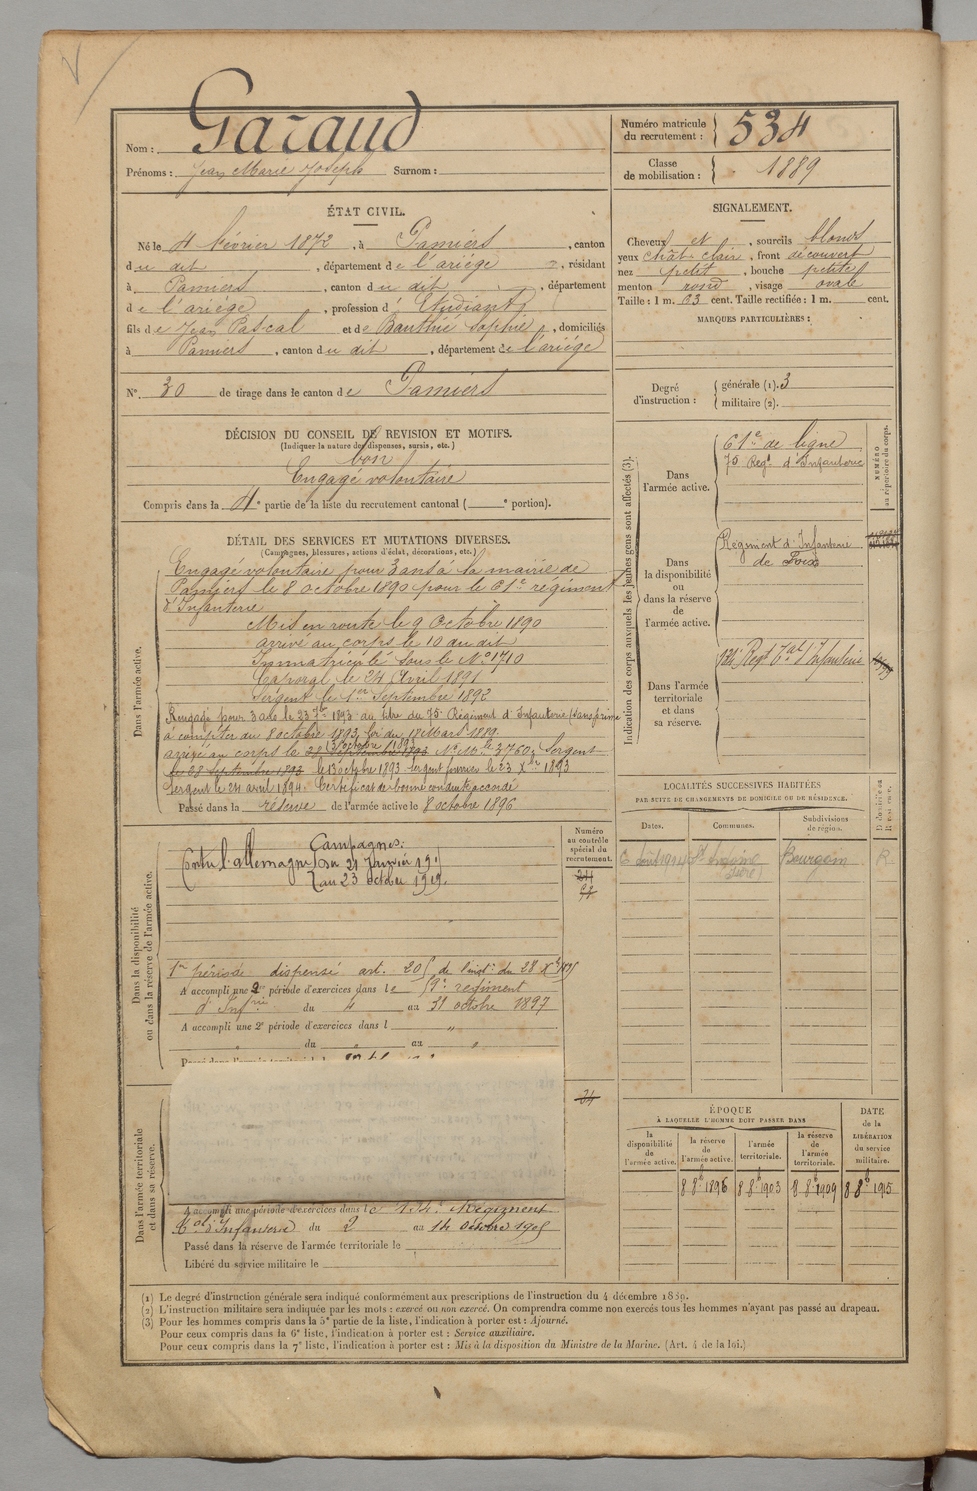 Nom : Garaud
Prénoms : Jean Marie Joseph Surnom :
Numéro matricule du recrutement : 534
Classe de mobilisation : 1889
ÉTAT CIVIL.
Né le 4 février 1872, à Pamiers, canton
du dit, département de l'ariège, résidant
à Pamiers, canton du dit, département
de l'ariège, profession d' Etudiant
fils de Jean Pascal et de Bauthié Sophie, domiciliés
à Pamiers, canton du dit, département de l'ariège
N° 30 de tirage dans le canton de Pamiers
SIGNALEMENT.
Cheveux et, sourcils blonds
yeux chât. clair, front découvert
nez petit, bouche petite
menton rond, visage ovale
Taille : 1 m. 63 cent. Taille rectifiée : 1 m. cent.
MARQUES PARTICULIÈRES :
Degré d'instruction : générale (1). 3
militaire (2).
DÉCISION DU CONSEIL DE REVISION ET MOTIFS.
(Indiquer la nature des dispenses, sursis, etc.)
bon
Engagé volontaire
Compris dans la 4e partie de la liste du recrutement cantonal ( e portion).
DÉTAIL DES SERVICES ET MUTATIONS DIVERSES.
(Campagnes, blessures, actions d'éclat, décorations, etc.)
Dans l'armée active.
Engagé volontaire pour 3 ans à la mairie de
Pamiers le 8 octobre 1890 pour le 61e régiment
d'Infanterie
Mis en route le 9 Octobre 1890
arrivé au corps le 10 du dit
Immatriculé sous le N° 1710
Caporal le 24 Avril 1891
Sergent le 1er Septembre 1892
Rengagé pour 3 ans le 23 7bre 1893 au titre du 75e Régiment d'Infanterie (sans prime
à compter du 8 octobre 1893, loi du 18 Mars 1889.
arrivé au corps le 28 Septembre 1893 N° Mle 3760, Sergent
le 28 Septembre 1893 le 13 octobre 1893 Sergent fourrier le 23 Xbre 1893
Sergent le 24 avril 1894. Certificat de bonne conduite accordé
Passé dans la réserve de l'armée active le 8 octobre 1896
Indication des corps auxquels les jeunes gens sont affectés (3).
NUMÉRO au répertoire du corps.
Dans l'armée active.
61e de ligne
75 Regt d'Infanterie
Dans la disponibilité ou dans la réserve de l'armée active.
Régiment d'Infanterie
de Foix
Dans l'armée territoriale et dans sa réserve.
134 Regt Tal d'Infanterie
LOCALITÉS SUCCESSIVES HABITÉES
PAR SUITE DE CHANGEMENTS DE DOMICILE OU DE RÉSIDENCE.
Dates. Communes. Subdivisions de région.
Août 1904 St Antoine (Isère) Bourgoin R.
Dans la disponibilité ou dans la réserve de l'armée active.
Numéro au contrôle spécial du recrutement.
Campagnes :
Contre l'allemagne Du 21 Janvier
au 23 octobre
1re période dispensé art. 205 de l'inston du 28 Xbre 1895
A accompli une 2e période d'exercices dans le régiment
d'Infrie du 4 au 31 octobre 1897
A accompli une 2e période d'exercices dans l "
" du " au "
Dans l'armée territoriale et dans sa réserve.
34
A accompli une période d'exercices dans le 134e Régiment
Tal d'Infanterie du 2 au 14 octobre 1905
Passé dans la réserve de l'armée territoriale le
Libéré du service militaire le
ÉPOQUE
À LAQUELLE L'HOMME DOIT PASSER DANS
la disponibilité de l'armée active.
la réserve de l'armée active.
l'armée territoriale.
la réserve de l'armée territoriale.
DATE de la LIBÉRATION du service militaire.
8 8b 1896 8 8b 1903 8 8b 1909 8 8b 1915
(1) Le degré d'instruction générale sera indiqué conformément aux prescriptions de l'instruction du 4 décembre 1889.
(2) L'instruction militaire sera indiquée par les mots : exercé ou non exercé. On comprendra comme non exercés tous les hommes n'ayant pas passé au drapeau.
(3) Pour les hommes compris dans la 5e partie de la liste, l'indication à porter est : Ajourné.
Pour ceux compris dans la 6e liste, l'indication à porter est : Service auxiliaire.
Pour ceux compris dans la 7e liste, l'indication à porter est : Mis à la disposition du Ministre de la Marine. (Art. 4 de la loi.)